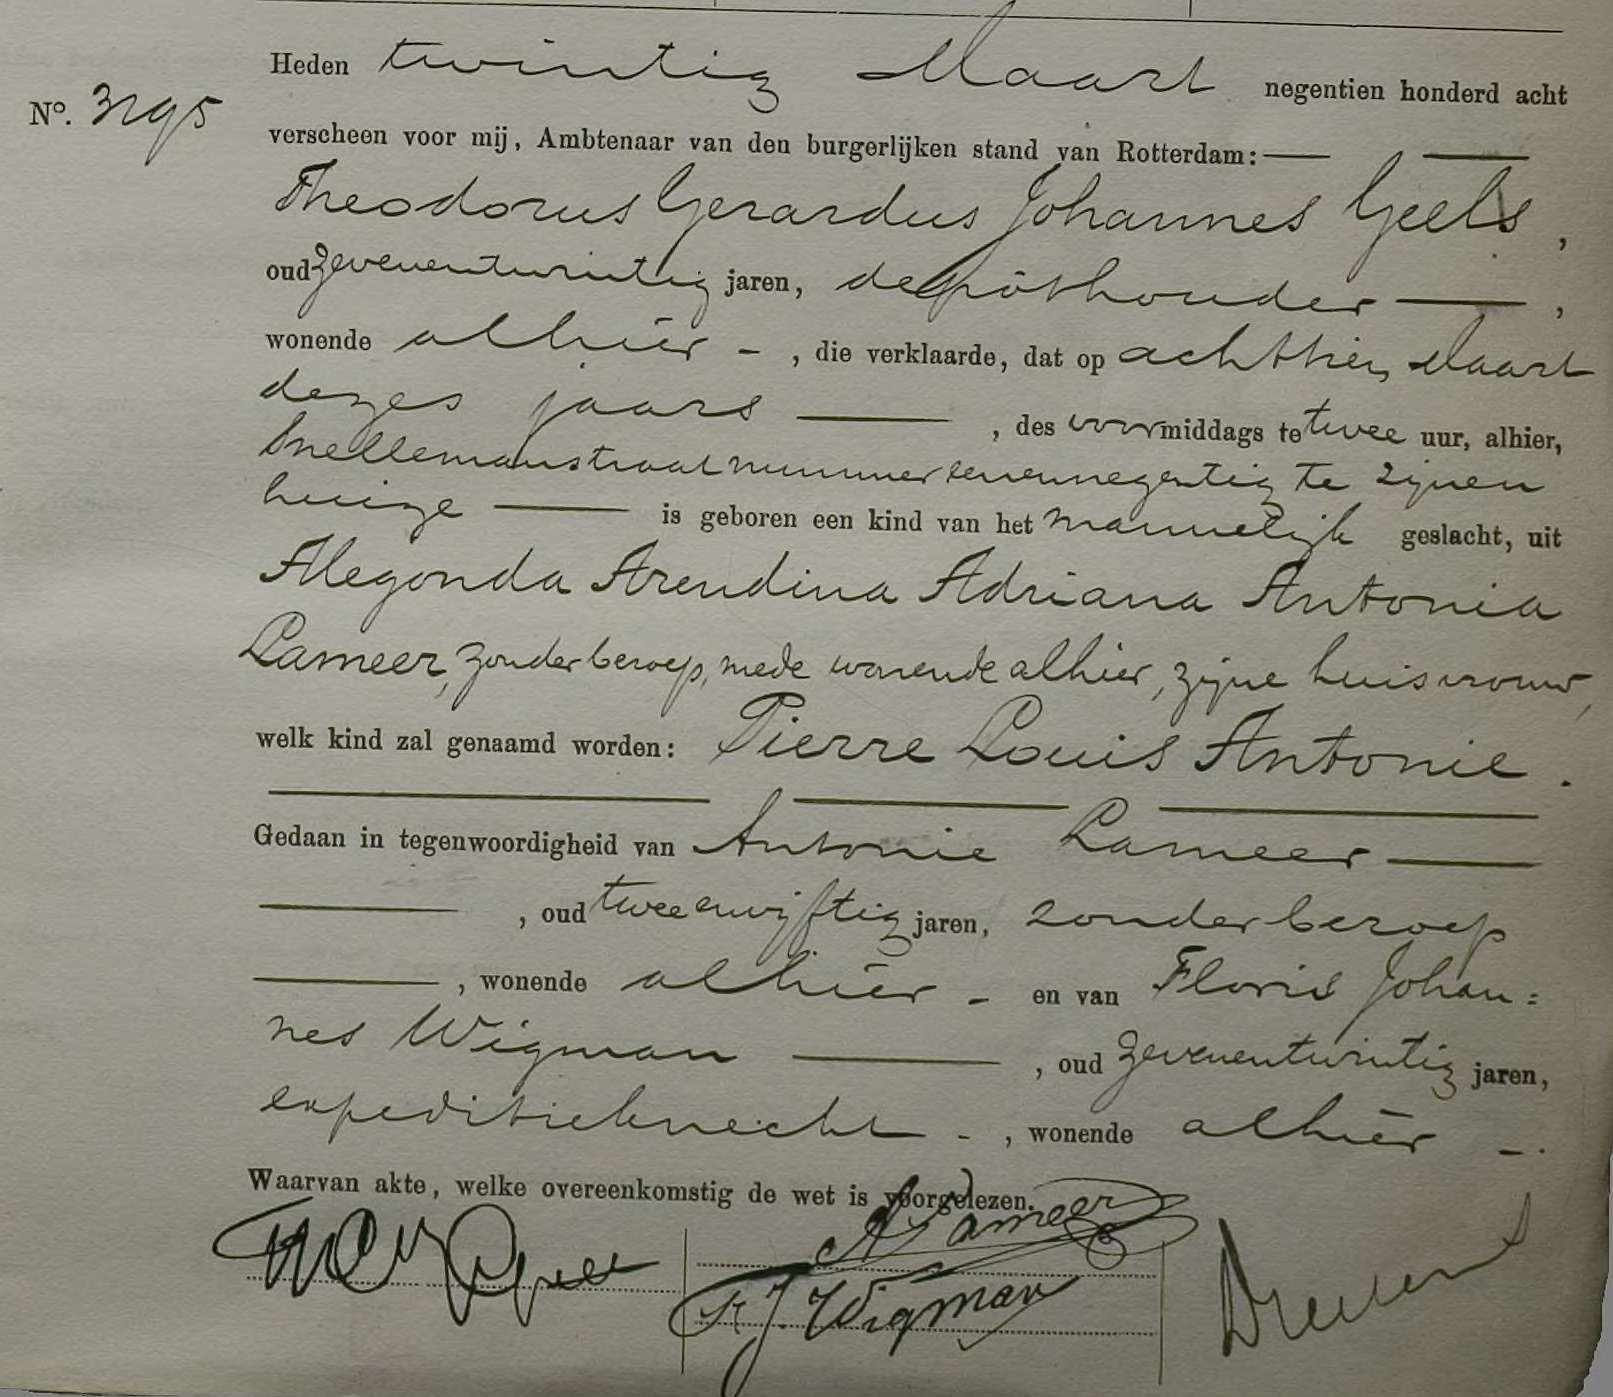 Heden twintig Maart negentien honderd acht
No. 3295
verscheen voor mij, Ambtenaar van den burgerlijken stand van Rotterdam:
Theodorus Gerardus Johannes Geels,
oud zevenentwintig jaren, depôthouder,
wonende alhier -, die verklaarde, dat op achttien Maart
dezes jaars, des voormiddags te twee uur, alhier,
Snellemanstraat nummer eenennegentig te zijnen
huize is geboren een kind van het mannelijk geslacht, uit
Alegonda Arendina Adriana Antonia
Lameer, zonder beroep, mede wonende alhier, zijne huisvrouw,
welk kind zal genaamd worden: Pierre Louis Antonie.
Gedaan in tegenwoordigheid van Antonie Lameer
, oud tweeenvijftig jaren, zonder beroep
, wonende alhier - en van Floris Johan=
nes Wigman, oud zevenentwintig jaren,
expeditieknecht -, wonende alhier -.
Waarvan akte, welke overeenkomstig de wet is voorgelezen.
A Lameer
F. J. Wigman